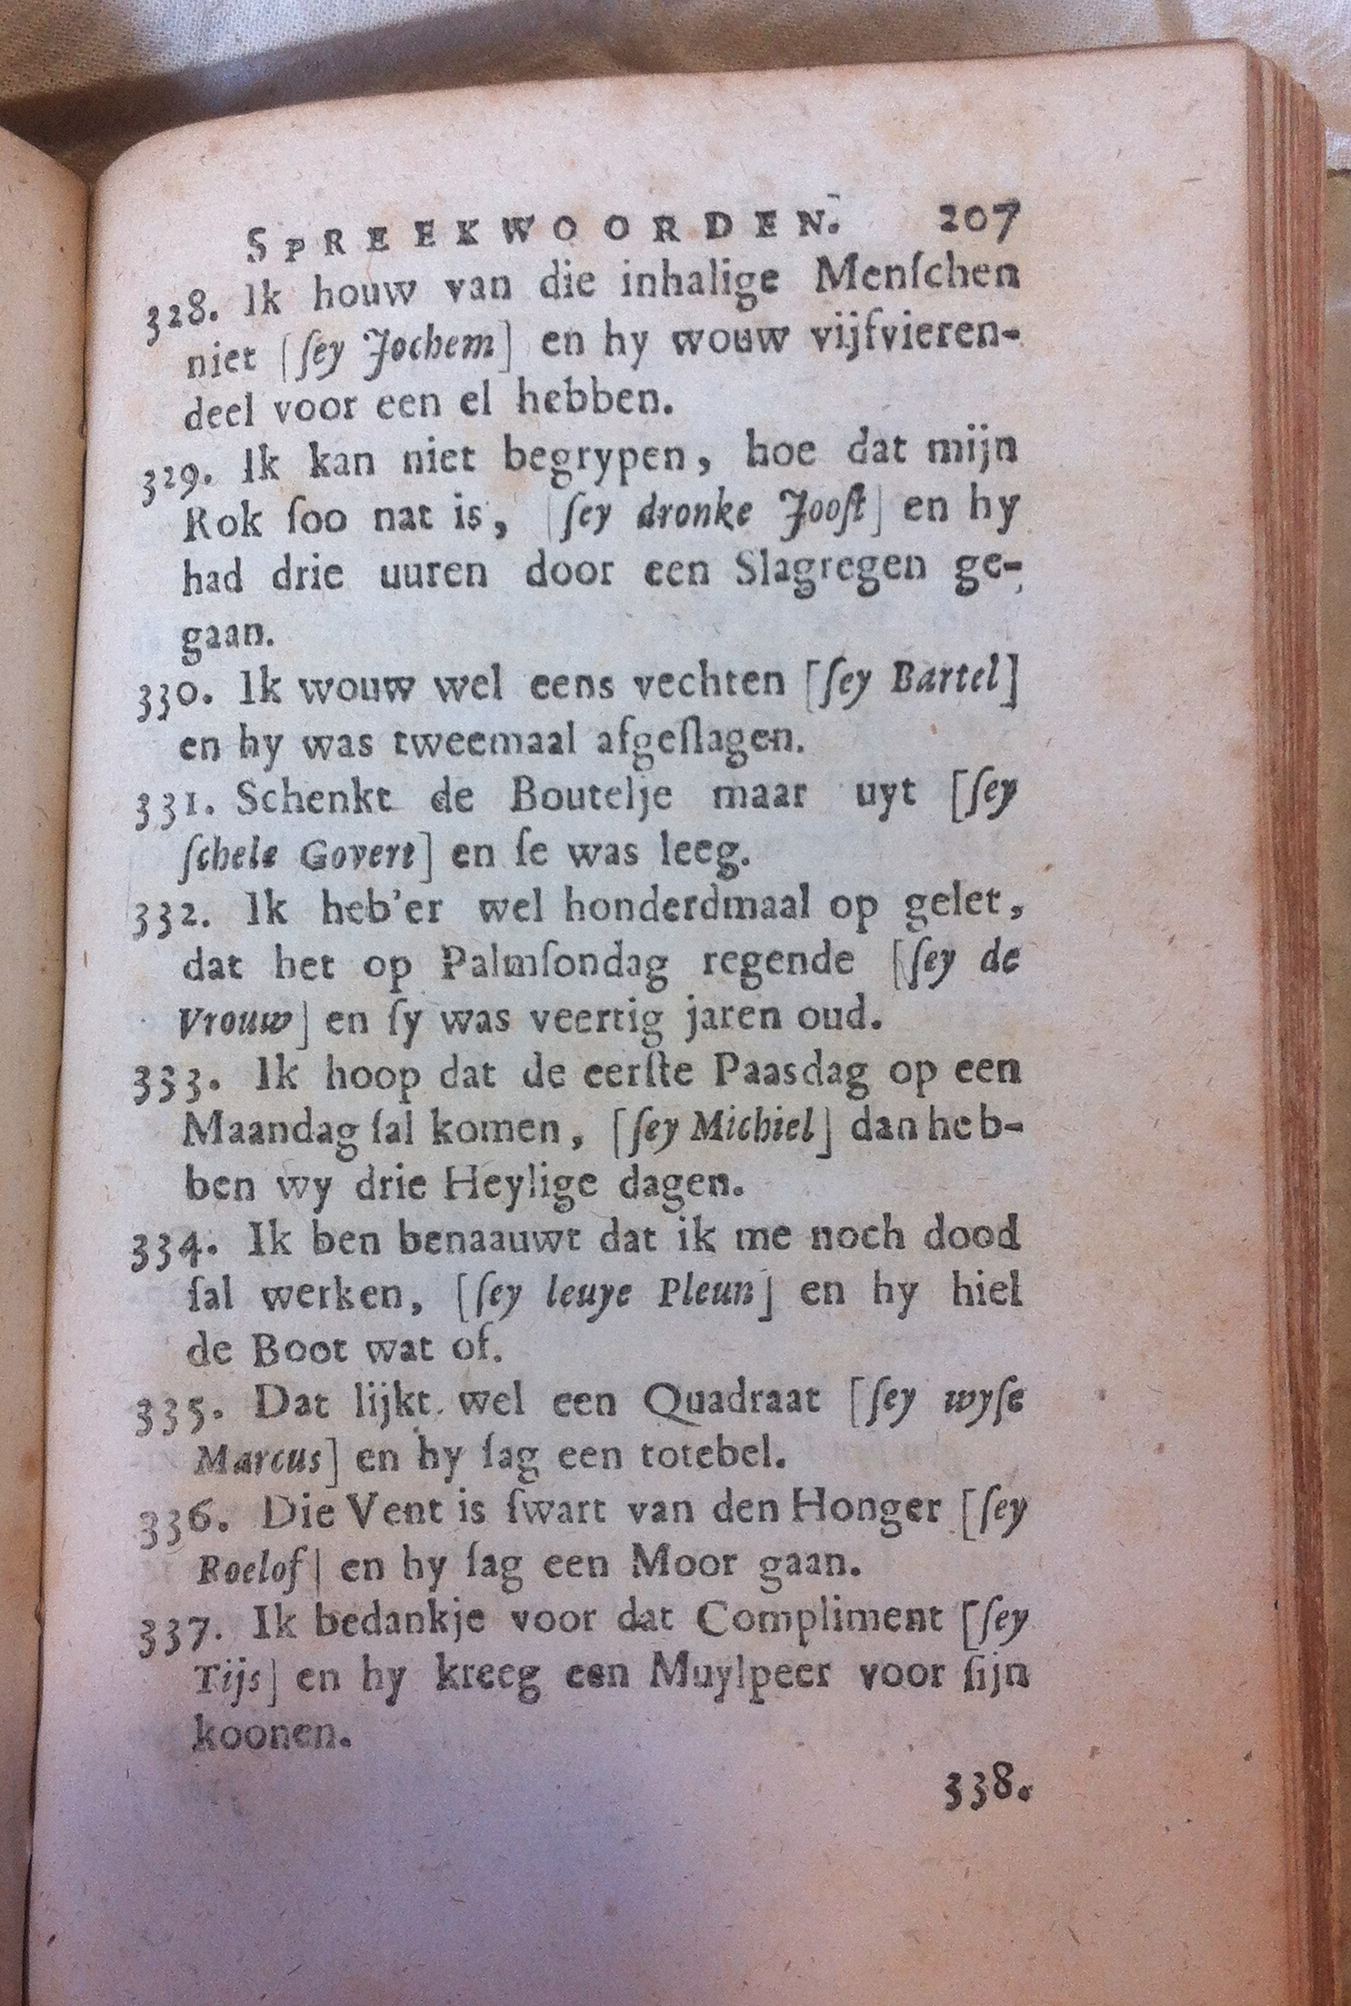 SPREEKWOORDEN. 207
328. Ik houw van die inhalige Menſchen
niet [ſey Jochem] en hy wouw vijfvieren-
deel voor een el hebben.
329. Ik kan niet begrypen, hoe dat mijn
Rok ſoo nat is, [ſey dronke Jooſt] en hy
had drie uuren door een Slagregen ge-
gaan.
330. Ik wouw wel eens vechten [ſey Bartel]
en hy was tweemaal afgeſlagen.
331. Schenkt de Boutelje maar uyt [ſey
ſchele Govert] en ſe was leeg.
332. Ik heb'er wel honderdmaal op gelet,
dat het op Palmſondag regende [ſey de
Vrouw] en ſy was veertig jaren oud.
333. Ik hoop dat de eerſte Paasdag op een
Maandag ſal komen, [ſey Michiel] dan heb-
ben wy drie Heylige dagen.
334. Ik ben benaauwt dat ik me noch dood
ſal werken, [ſey leuye Pleun] en hy hiel
de Boot wat of.
335. Dat lijkt wel een Quadraat [ſey wyſe
Marcus] en hy ſag een totebel.
336. Die Vent is ſwart van den Honger [ſey
Roelof] en hy ſag een Moor gaan.
337. Ik bedankje voor dat Compliment [ſey
Tijs] en hy kreeg een Muylpeer voor ſijn
koonen.
338.